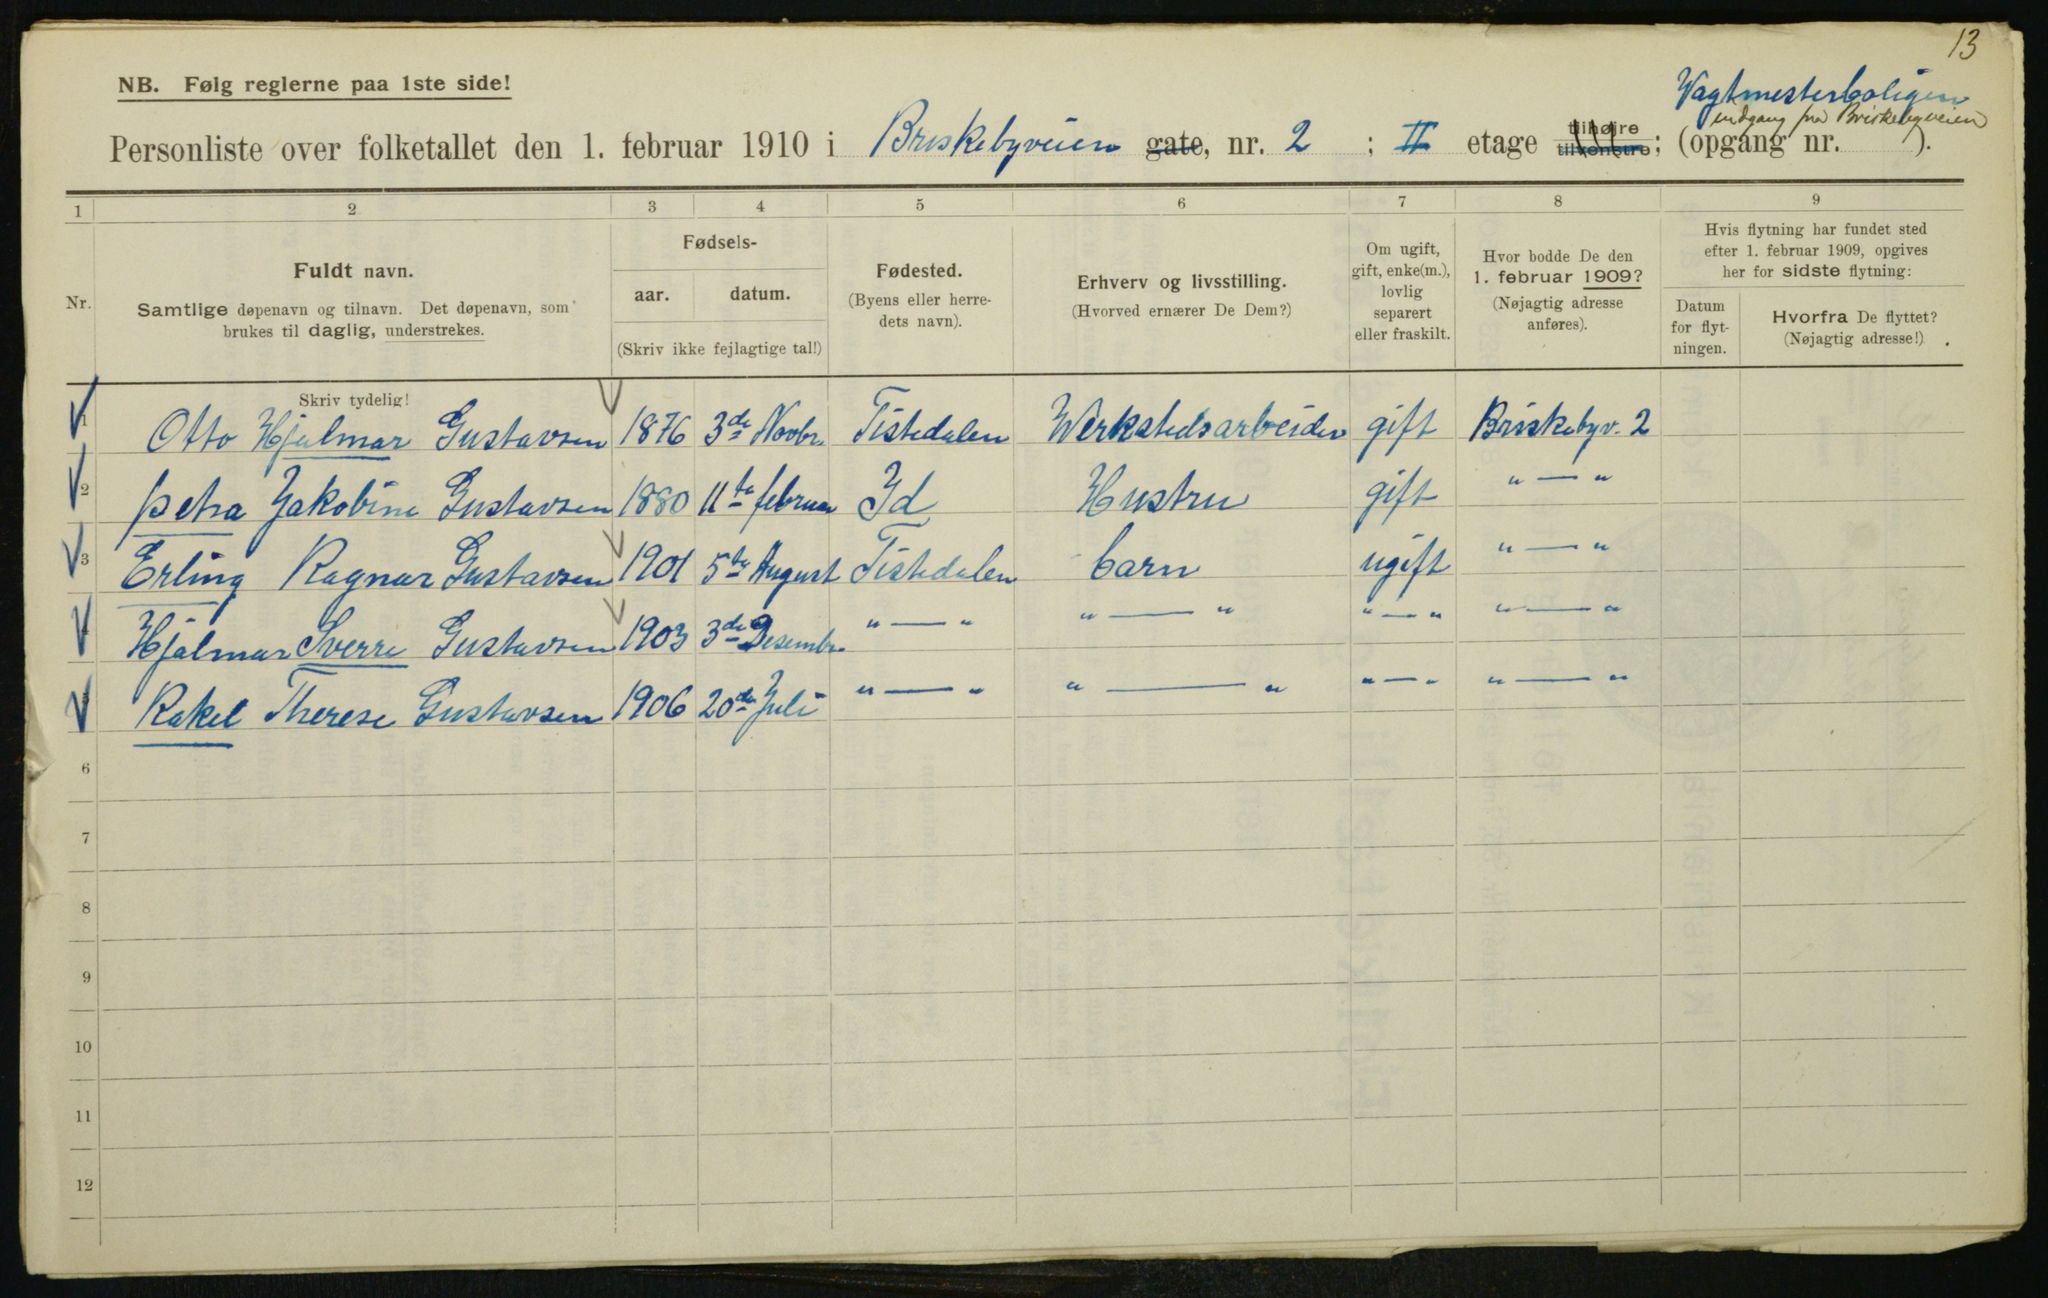 13
NB. Følg reglerne paa 1ste side!
Vagtmesterboligen
indgang fra Briskebyveien
Personliste over folketallet den 1. februar 1910 i Briskebyveien gate, nr. 2 ; II etage tilhøjre tilvenstre; (opgang nr. ).
1 2 3 4 5 6 7 8 9
Nr.
Fuldt navn.
Samtlige døpenavn og tilnavn. Det døpenavn, som
brukes til daglig, understrekes.
Fødsels-
aar. datum.
(Skriv ikke fejlagtige tal!)
Fødested.
(Byens eller herre-
dets navn).
Erhverv og livsstilling.
(Hvorved ernærer De Dem?)
Om ugift,
gift, enke(m.),
lovlig
separert
eller fraskilt.
Hvor bodde De den
1. februar 1909?
(Nøjagtig adresse
anføres).
Hvis flytning har fundet sted
efter 1. februar 1909, opgives
her for sidste flytning:
Datum
for flyt-
ningen.
Hvorfra De flyttet?
(Nøjagtig adresse!)
Skriv tydelig!
1 Otto Hjalmar Gustavsen 1876 3de Novbr. Tistedalen Werkstedsarbeider gift Briskebyv. 2
2 Petra Jakobine Gustavsen 1880 11te februar Id Hustru gift " — "
3 Erling Ragnar Gustavsen 1901 5te August Tistedalen barn ugift " — "
4 Hjalmar Sverre Gustavsen 1903 3de Desembr. " — " " — " " — " " — "
5 Rakel Therese Gustavsen 1906 20de Juli " — " " — " " — " " — "
6
7
8
9
10
11
12